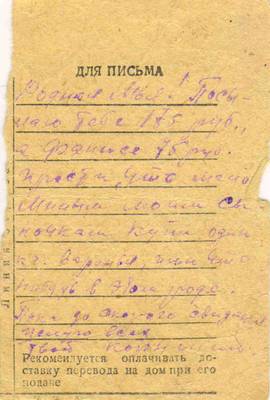 ДЛЯ ПИСЬМА
Родная Аня! Посы-
лаю тебе 175 руб.,
а Фаннесе 75 руб.
Прости, что мало.
Милым моим сы
ночкам купи один
кг. варенья, или что
нибудь в этом роде.
Пока до скорого свидания
Целую всех
твой
Линия
Рекомендуется оплачивать до-
ставку перевода на дом при его
подаче